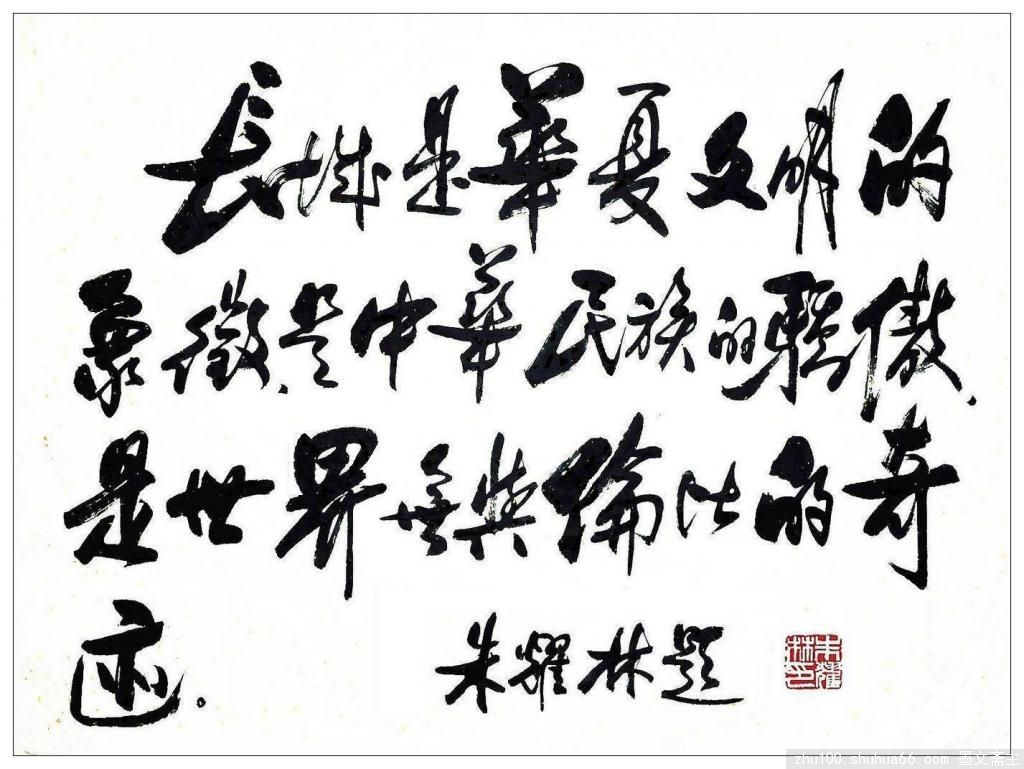 长城是華夏文明的
象徵,是中華民族的驕傲,
是世界無與倫比的奇
迹。
朱耀林題
朱耀林印
zhu100.shuhua66.com 墨文斋主